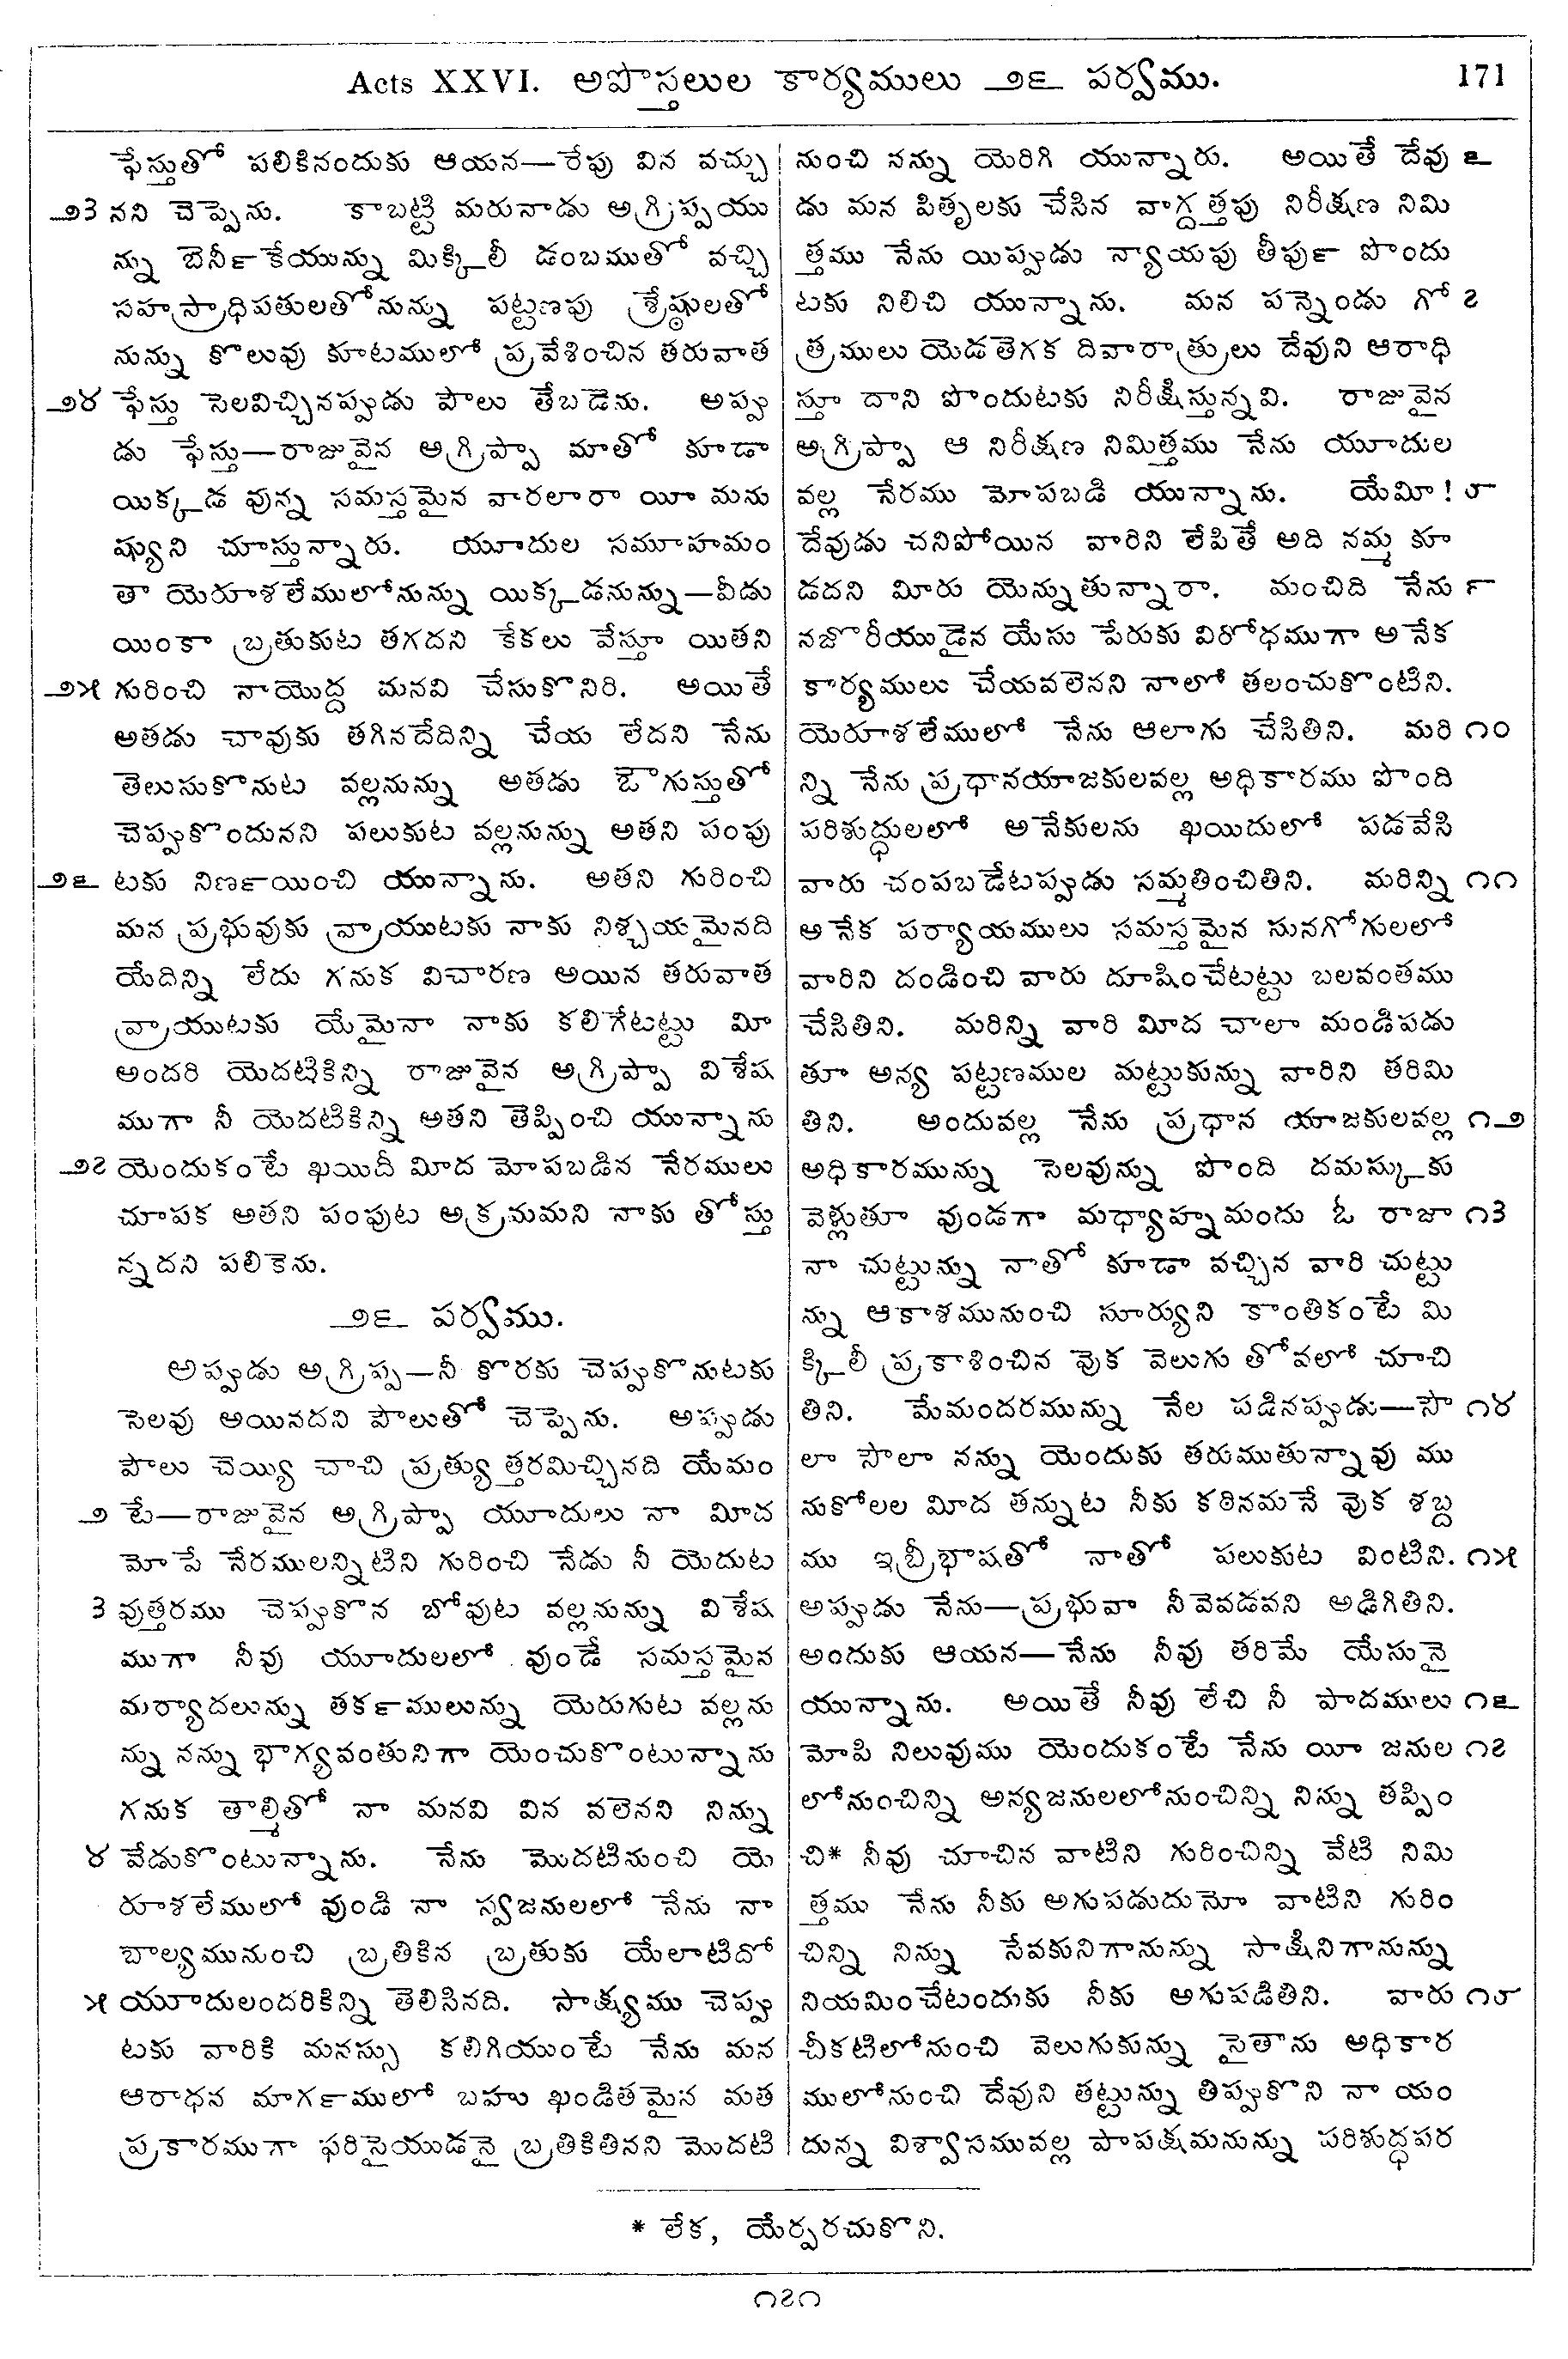 Acts XXVI. అపొస్తలుల కార్యములు ౨౬ పర్వము. 171
ఫేస్తుతో పలికినందుకు ఆయన—రేపు విన వచ్చు
౨౩ నని చెప్పెను. కాబట్టి మరునాడు అగ్రిప్పయు
న్ను బెనీ౯కేయున్ను మిక్కిలీ డంబముతో వచ్చి
సహస్రాధిపతులతోనున్ను పట్టణపు శ్రేష్ఠులతో
నున్ను కొలువు కూటములో ప్రవేశించిన తరువాత
౨౪ ఫేస్తు సెలవిచ్చినప్పుడు పౌలు తేబడెను. అప్పు
డు ఫేస్తు—రాజువైన అగ్రిప్పా మాతో కూడా
యిక్కడ వున్న సమస్తమైన వారలారా యీ మను
ష్యుని చూస్తున్నారు. యూదుల సమూహమం
తా యెరూశలేములోనున్ను యిక్కడనున్ను—వీడు
యింకా బ్రతుకుట తగదని కేకలు వేస్తూ యితని
౨౫ గురించి నాయొద్ద మనవి చేసుకొనిరి. అయితే
అతడు చావుకు తగినదేదిన్ని చేయ లేదని నేను
తెలుసుకొనుట వల్లనున్ను అతడు ఔగుస్తుతో
చెప్పుకొందునని పలుకుట వల్లనున్ను అతని పంపు
౨౬ టకు నిణ౯యించి యున్నాను. అతని గురించి
మన ప్రభువుకు వ్రాయుటకు నాకు నిశ్చయమైనది
యేదిన్ని లేదు గనుక విచారణ అయిన తరువాత
వ్రాయుటకు యేమైనా నాకు కలిగేటట్టు మీ
అందరి యెదటికిన్ని రాజువైన అగ్రిప్పా విశేష
ముగా నీ యెదటికిన్ని అతని తెప్పించి యున్నాను
౨౭ యెందుకంటే ఖయిదీ మీద మోపబడిన నేరములు
చూపక అతని పంపుట అక్రమమని నాకు తోస్తు
న్నదని పలికెను.
౨౬ పర్వము.
అప్పుడు అగ్రిప్ప—నీ కొరకు చెప్పుకొనుటకు
సెలవు అయినదని పౌలుతో చెప్పెను. అప్పుడు
పౌలు చెయ్యి చాచి ప్రత్యుత్తరమిచ్చినది యేమం
౨ టే—రాజువైన అగ్రిప్పా యూదులు నా మీద
మోపే నేరములన్నిటిని గురించి నేడు నీ యెదుట
౩ వుత్తరము చెప్పుకొన బోవుట వల్లనున్ను విశేష
ముగా నీవు యూదులలో వుండే సమస్తమైన
మర్యాదలున్ను తక౯ములున్ను యెరుగుట వల్లను
న్ను నన్ను భాగ్యవంతునిగా యెంచుకొంటున్నాను
గనుక తాల్మితో నా మనవి విన వలెనని నిన్ను
౪ వేడుకొంటున్నాను. నేను మొదటినుంచి యె
రూశలేములో వుండి నా స్వజనులలో నేను నా
బాల్యమునుంచి బ్రతికిన బ్రతుకు యేలాటిదో
౫ యూదులందరికిన్ని తెలిసినది. సాక్ష్యము చెప్పు
టకు వారికి మనస్సు కలిగియుంటే నేను మన
ఆరాధన మాగ౯ములో బహు ఖండితమైన మత
ప్రకారముగా ఫరిసైయుడనై బ్రతికితినని మొదటి
నుంచి నన్ను యెరిగి యున్నారు. అయితే దేవు ౬
డు మన పితృలకు చేసిన వాగ్దత్తపు నిరీక్షణ నిమి
త్తము నేను యిప్పుడు న్యాయపు తీపు౯ పొందు
టకు నిలిచి యున్నాను. మన పన్నెండు గో ౭
త్రములు యెడతెగక దివారాత్రులు దేవుని ఆరాధి
స్తూ దాని పొందుటకు నిరీక్షిస్తున్నవి. రాజువైన
అగ్రిప్పా ఆ నిరీక్షణ నిమిత్తము నేను యూదుల
వల్ల నేరము మోపబడి యున్నాను. యేమీ! ౮
దేవుడు చనిపోయిన వారిని లేపితే అది నమ్మ కూ
డదని మీరు యెన్నుతున్నారా. మంచిది నేను ౯
నజొరీయుడైన యేసు పేరుకు విరోధముగా అనేక
కార్యములు చేయవలెనని నాలో తలంచుకొంటిని.
యెరూశలేములో నేను ఆలాగు చేసితిని. మరి ౧౦
న్ని నేను ప్రధానయాజకులవల్ల అధికారము పొంది
పరిశుద్ధులలో అనేకులను ఖయిదులో పడవేసి
వారు చంపబడేటప్పుడు సమ్మతించితిని. మరిన్ని ౧౧
అనేక పర్యాయములు సమస్తమైన సునగోగులలో
వారిని దండించి వారు దూషించేటట్టు బలవంతము
చేసితిని. మరిన్ని వారి మీద చాలా మండిపడు
తూ అన్య పట్టణముల మట్టుకున్ను వారిని తరిమి
తిని. అందువల్ల నేను ప్రధాన యాజకులవల్ల ౧౨
అధికారమున్ను సెలవున్ను పొంది దమస్కుకు
వెళ్లుతూ వుండగా మధ్యాహ్నమందు ఓ రాజా ౧౩
నా చుట్టున్ను నాతో కూడా వచ్చిన వారి చుట్టు
న్ను ఆకాశమునుంచి సూర్యుని కాంతికంటే మి
క్కిలీ ప్రకాశించిన వుక వెలుగు తోవలో చూచి
తిని. మేమందరమున్ను నేల పడినప్పుడు—సౌ ౧౪
లా సౌలా నన్ను యెందుకు తరుముతున్నావు ము
నుకోలల మీద తన్నుట నీకు కఠినమనే వుక శబ్ద
ము ఇబ్రీభాషతో నాతో పలుకుట వింటిని. ౧౫
అప్పుడు నేను—ప్రభువా నీవెవడవని అడిగితిని.
అందుకు ఆయన—నేను నీవు తరిమే యేసునై
యున్నాను. అయితే నీవు లేచి నీ పాదములు ౧౬
మోపి నిలువుము యెందుకంటే నేను యీ జనుల ౧౭
లోనుంచిన్ని అన్యజనులలోనుంచిన్ని నిన్ను తప్పిం
చి* నీవు చూచిన వాటిని గురించిన్ని వేటి నిమి
త్తము నేను నీకు అగుపడుదునో వాటిని గురిం
చిన్ని నిన్ను సేవకునిగానున్ను సాక్షినిగానున్ను
నియమించేటందుకు నీకు అగుపడితిని. వారు ౧౮
చీకటిలోనుంచి వెలుగుకున్ను సైతాను అధికార
ములోనుంచి దేవుని తట్టున్ను తిప్పుకొని నా యం
దున్న విశ్వాసమువల్ల పాపక్షమనున్ను పరిశుద్ధపర
* లేక, యేర్పరచుకొని.
౧౭౧